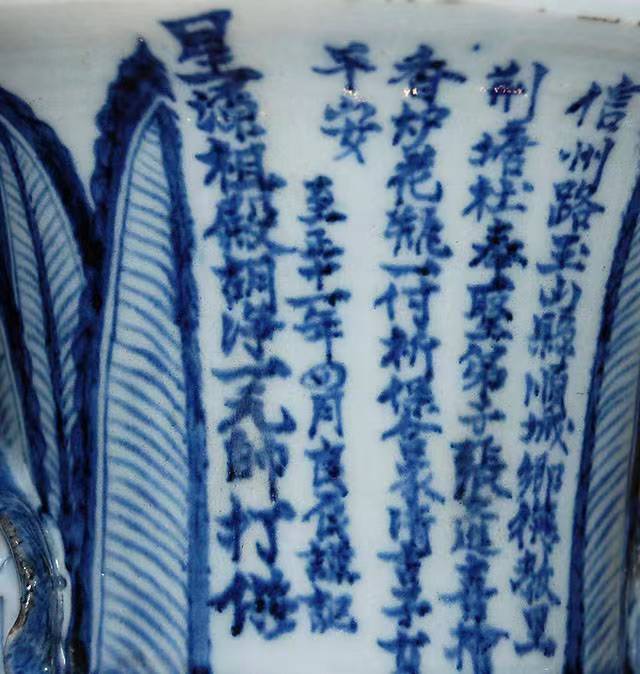 信州路玉山縣順城鄉德教里
荊塘社奉聖弟子張文進喜捨
香炉花瓶一付祈保合家清吉子女
平安 至正十一年四月良辰謹記
星源祖殿胡淨一元帥打供